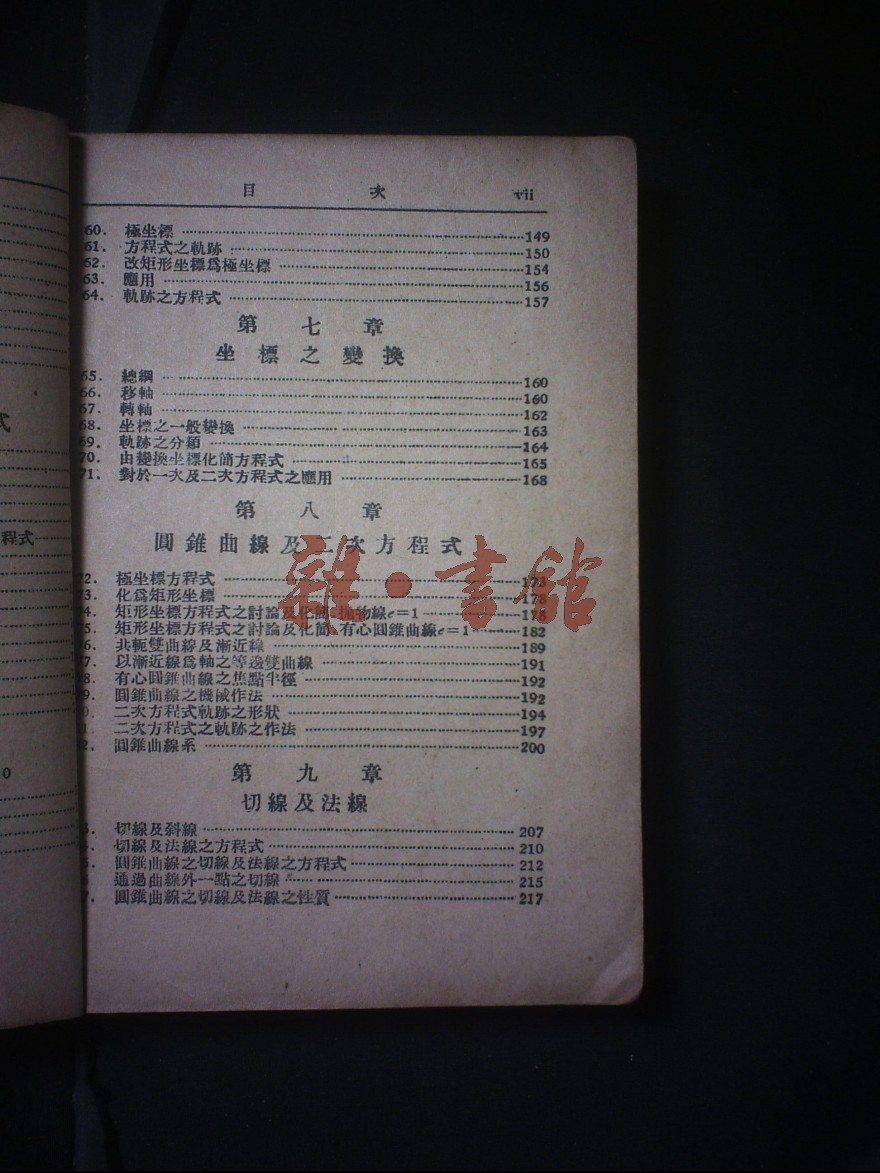 目 次 vii
60. 極坐標 149
61. 方程式之軌跡 150
62. 改矩形坐標爲極坐標 154
63. 應用 156
64. 軌跡之方程式 157
第七章
坐標之變換
65. 總綱 160
66. 移軸 160
67. 轉軸 162
68. 坐標之一般變換 163
69. 軌跡之分類 164
70. 由變換坐標化簡方程式 165
71. 對於一次及二次方程式之應用 168
第八章
圓錐曲線及二次方程式
72. 極坐標方程式 173
73. 化爲矩形坐標 178
74. 矩形坐標方程式之討論及化簡、拋物線e=1 178
75. 矩形坐標方程式之討論及化簡、有心圓錐曲線e=1 182
76. 共軛雙曲線及漸近線 189
77. 以漸近線爲軸之等邊雙曲線 191
8. 有心圓錐曲線之焦點半徑 192
9. 圓錐曲線之機械作法 192
0. 二次方程式軌跡之形狀 194
1. 二次方程式之軌跡之作法 197
2. 圓錐曲線系 200
第九章
切線及法線
3. 切線及斜線 207
4. 切線及法線之方程式 210
5. 圓錐曲線之切線及法線之方程式 212
6. 通過曲線外一點之切線 215
7. 圓錐曲線之切線及法線之性質 217
式
程式
0
雜·書館